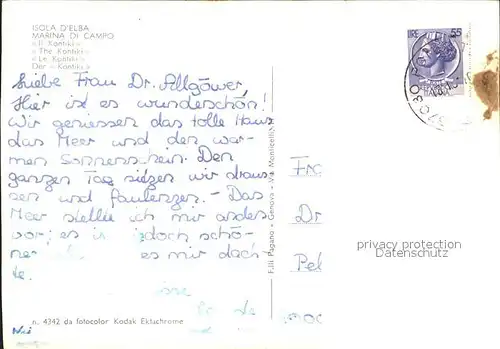 ISOLA D'ELBA
MARINA DI CAMPO
« Il Kontiki »
« The Kontiki »
« Le Kontiki »
Dar « Kontiki »
Liebe Frau Dr. Allgöwer,
Hier ist es wunderschön!
Wir geniessen das tolle Haus
das Meer und den war-
men Sonnenschein. Den
ganzen Tag sitzen wir draus-
sen und faulenzen. - Das
Meer stellte ich mir anders
vor; es is jedoch schö-
ner es mir dach-
te.
n. 4342 da fotocolor Kodak Ektachrome
F.lli Pagano - Genova - Via Monticelli
LIRE 55
Dr
privacy protection
Datenschutz